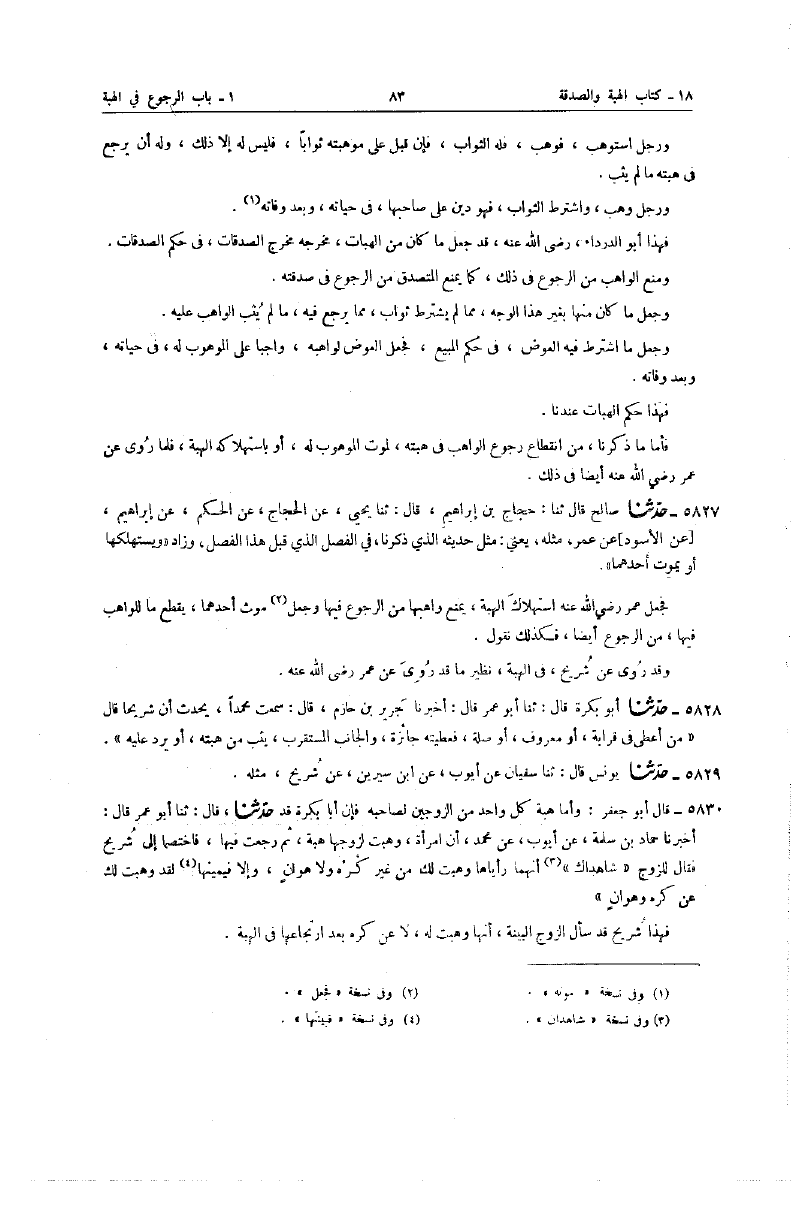 ١٨ـ كتاب الهبة والصدقة ٨٣ ١ـ باب الرجوع في الهبة
ورجل استوهب ، فوهب ، فله الثواب ، فإن قبل على موهبته ثواباً ، فليس له إلا ذلك ، وله أن يرجع
فى هبته ما لم يثب .
ورجل وهب ، واشترط الثواب ، فهو دين على صاحبها ، فى حياته ، وبعد وفاته(١) .
فهذا أبو الدرداء ، رضى الله عنه ، قد جعل ما كان من الهبات ، مخرجه مخرج الصدقات ، فى حكم الصدقات .
ومنع الواهب من الرجوع فى ذلك ، كما يمنع المتصدق من الرجوع فى صدقته .
وجعل ما كان منها بغير هذا الوجه ، مما لم يشترط ثواب ، مما يرجع فيه ، ما لم يُثب الواهب عليه .
وجعل ما اشترط فيه العوض ، فى حكم المبيع ، فجعل العوض لواهبه ، واجبا على الموهوب له ، فى حياته ،
وبعد وفاته .
فهذا حكم الهبات عندنا .
فأما ما ذكرنا ، من انقطاع رجوع الواهب فى هبته ، لموت الموهوب له ، أو باستهلاكه الهبة ، فلما رُوى عن
عمر رضي الله عنه أيضا فى ذلك .
٥٨٢٧ ـ حدّثنا صالح قال ثنا : حجاج بن إبراهيم ، قال : ثنا يحيى ، عن الحجاج ، عن الحكم ، عن إبراهيم ،
[عن الأسود]عن عمر، مثله، يعني: مثل حديثه الذي ذكرنا،في الفصل الذي قبل هذا الفصل، وزاد «ويستهلكها
أو يموت أحدهما».
فجعل عمر رضي الله عنه استهلاكَ الهبة ، يمنع واهبها من الرجوع فيها وجعل(٢) موث أحدهما ، يقطع ما للواهب
فيها ، من الرجوع أيضا ، فكذلك نقول .
وقد رُوى عن شُريح ، فى الهبة ، نظير ما قد رُوىَ عن عمر رضى الله عنه .
٥٨٢٨ ـ حدّثنا أبو بكرة قال : ثنا أبو عمر قال : أخبرنا جرير بن حازم ، قال : سمعت محمداً ، يحدث أن شريحا قال
« من أعطى فى قرابة ، أو معروف ، أو صلة ، فعطيته جائزة ، والجانب المستقرب ، يثب من هبته ، أو يرد عليه » .
٥٨٢٩ ـ حدّثنا يونس قال : ثنا سفيان عن أيوب ، عن ابن سيرين ، عن شُريح ، مثله .
٥٨٣٠ ـ قال أبو جعفر : وأما هبة كل واحد من الزوجين لصاحبه فإن أبا بكرة قد حدّثنا ، قال : ثنا أبو عمر قال :
أخبرنا حماد بن سلمة ، عن أيوب ، عن محمد ، أن امرأة ، وهبت لزوجها هبة ، ثم رجعت فيها ، فاختصما إلى شُريح
فقال للزوج « شاهداك »(٣) أنهما رأياها وهبت لك من غير كُرْه ولا هوانٍ ، وإلا فيمينها(٤) لقد وهبت لك
عن كره وهوانٍ »
فهذا شُريح قد سأل الزوج البينة ، أنها وهبت له ، لا عن كره بعد ارتجاعها فى الهبة .
(١) وفى نسخة « موته » . (٢) وفى نسخة « فجعل » .
(٣) وفى نسخة « شاهدان » . (٤) وفى نسخة « فبينتها » .